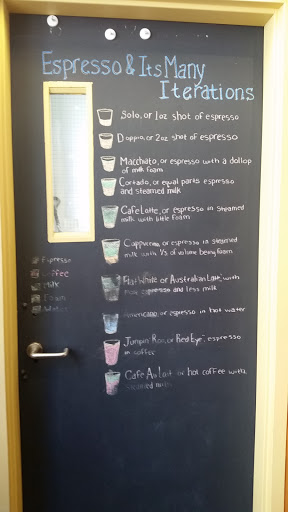 Espresso & Its Many
Iterations
Solo, or 1oz shot of espresso
Doppio, or 2oz shot of espresso
Macchiato, or espresso with a dollop
of milk foam
Cortado, or equal parts espresso
and steamed milk
Cafe Latte, or espresso in steamed
milk with little foam
Cappuccino, or espresso in steamed
milk with ⅓ of volume being foam
Flat White or Australian Latte, with
espresso and less milk
Americano, or espresso in hot water
Jumpin' Ron, or Red Eye, espresso
in coffee
Cafe Au Lait or hot coffee with
steamed milk
Espresso
Coffee
Milk
Foam
Water